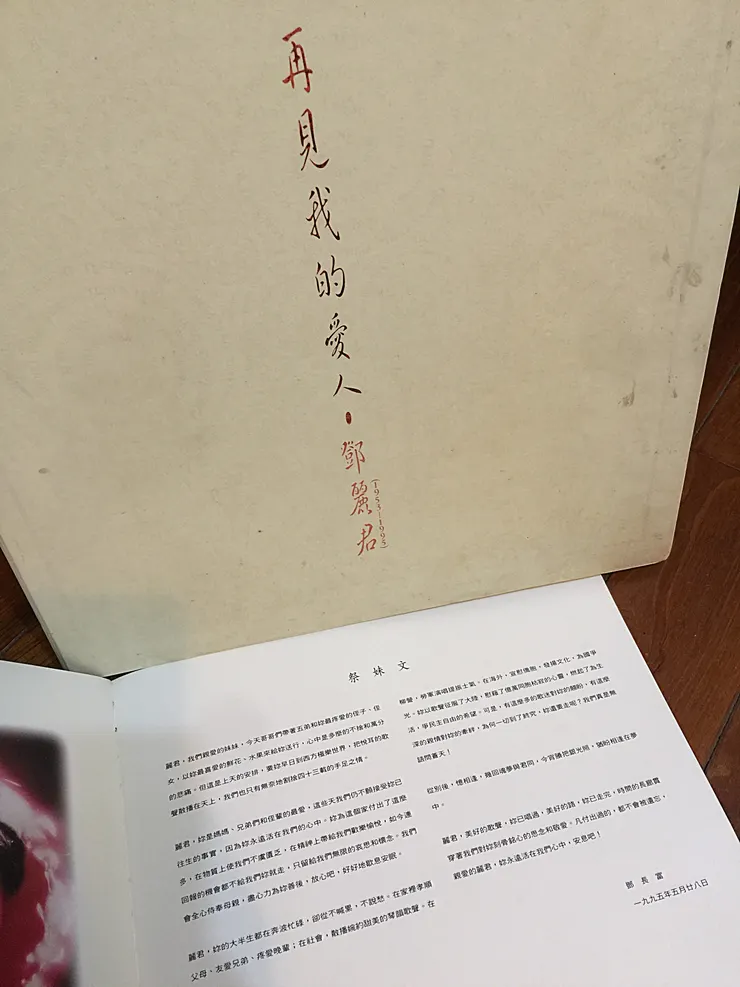 再見我的愛人・鄧麗君
(1953-1995)
祭妹文
麗君，我們親愛的妹妹，今天哥哥們帶著五弟和妳最疼愛的侄子、侄
女，以妳最喜愛的鮮花、水果來給妳送行，心中是多麼的不捨和萬分
的悲痛。但這是上天的安排，要妳早日到西方極樂世界，把悅耳的歌
聲散播在天上，我們也只有無奈地割捨四十三載的手足之情。
麗君，妳是媽媽、兄弟們和侄輩的最愛，這些天我們仍不願接受妳已
往生的事實，因為妳永遠活在我們的心中。妳為這個家付出了這麼
多，在物質上使我們不虞匱乏，在精神上帶給我們歡樂愉悅，如今連
回報的機會都不給我們妳就走，只留給我們無限的哀思和懷念。我們
會全心侍奉母親，盡心力為妳善後，放心吧，好好地歇息安眠。
麗君，妳的大半生都在奔波忙碌，卻從不喊累，不說愁。在家裡孝順
父母、友愛兄弟、疼愛晚輩；在社會，散播綿約甜美的琴韻歌聲。在
柳營，勞軍演唱提振士氣。在海外，宣慰僑胞，發揚文化，為國爭
光。妳以歌聲征服了大陸，慰藉了億萬同胞枯寂的心靈，燃起了為生
活，爭民主自由的希望。可是，有這麼多的歌迷對妳的關盼，有這麼
深的親情對妳的牽絆，為何一切到了終究，妳還要走呢？我們真是無
語問蒼天！
從別後，憶相逢，幾回魂夢與君同，今宵賸把銀光照，猶盼相逢在夢
中。
麗君，美好的歌聲，妳已唱過，美好的路，妳已走完，時間的長廊貫
穿著我們對妳刻骨銘心的思念和敬愛。凡付出過的，都不會被遺忘，
親愛的麗君，妳永遠活在我們心中，安息吧！
鄧長富
一九九五年五月廿八日